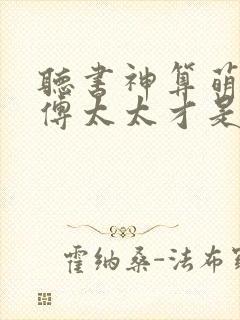 聽書神算萌
傅太太才是
霍纳桑-法布